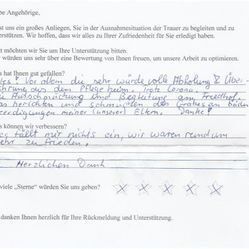 be Angehörige,
st uns ein großes Anliegen, Sie in der Ausnahmesituation der Trauer zu begleiten und zu
erstützen. Wir hoffen, dass wir alles zu Ihrer Zufriedenheit für Sie erledigt haben.
t möchten wir Sie um Ihre Unterstützung bitten.
würden uns sehr über eine Bewertung von Ihnen freuen, um unsere Arbeit zu optimieren.
s hat Ihnen gut gefallen?
Vor allem die sehr würdevolle Abholung & Über-
führung aus dem Pflegeheim, trotz Corona.
Aufbahrung und Begleitung am Friedhof,
herrichten und schmücken des Grabes an beiden
Beerdigungen meiner (unserer) Eltern. Danke!
s können wir verbessern?
fällt mir nichts ein, wir waren rundum
sehr zufrieden.
Herzlichen Dank
viele „Sterne“ würden Sie uns geben?
danken Ihnen herzlich für Ihre Rückmeldung und Unterstützung.